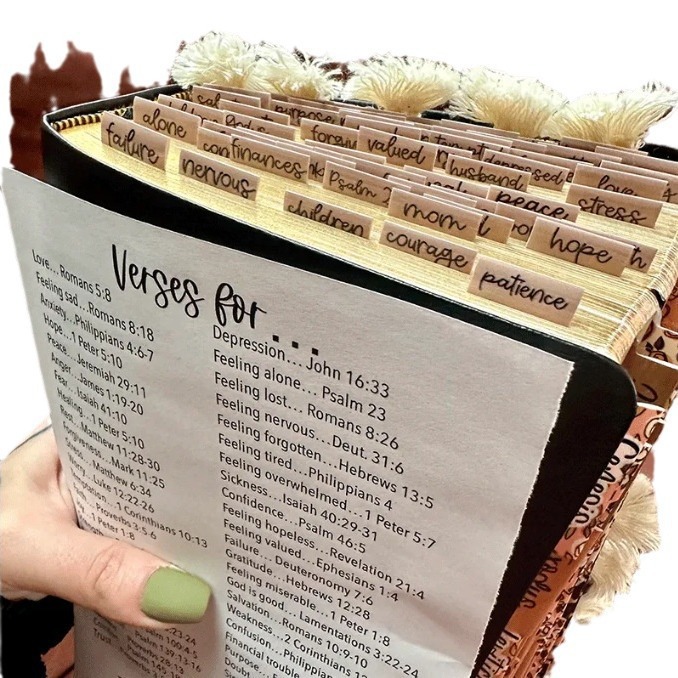 alone
purpose
valued
depressed
failure
finances
husband
love
nervous
Psalm
peace
stress
children
mom
courage
hope
patience
Verses for...
Love... Romans 5:8
Feeling sad...Romans 8:18
Anxiety...Philippians 4:6-7
Hope...1 Peter 5:10
Peace...Jeremiah 29:11
Anger...James 1:19-20
Fear...Isaiah 41:10
Healing...1 Peter 5:10
Rest...Matthew 11:28-30
Forgiveness...Mark 11:25
Stress...Matthew 6:34
Worry...Luke 12:22-26
1 Corinthians 10:13
Proverbs 3:5-6
1 Peter 1:8
23-24
Psalm 100:4-5
Psalm 139:13-16
Proverbs 28:13
Trust
Depression... John 16:33
Feeling alone... Psalm 23
Feeling lost... Romans 8:26
Feeling nervous...Deut. 31:6
Feeling forgotten...Hebrews 13:5
Feeling tired...Philippians 4
Feeling overwhelmed...1 Peter 5:7
Sickness...Isaiah 40:29-31
Confidence...Psalm 46:5
Feeling hopeless...Revelation 21:4
Feeling valued...Ephesians 1:4
Failure... Deuteronomy 7:6
Gratitude...Hebrews 12:28
Feeling miserable...1 Peter 1:8
God is good... Lamentations 3:22-24
Salvation...Romans 10:9-10
Weakness...2 Corinthians 12
Confusion...Philippian
Financial trouble
Purpose...
Doubt